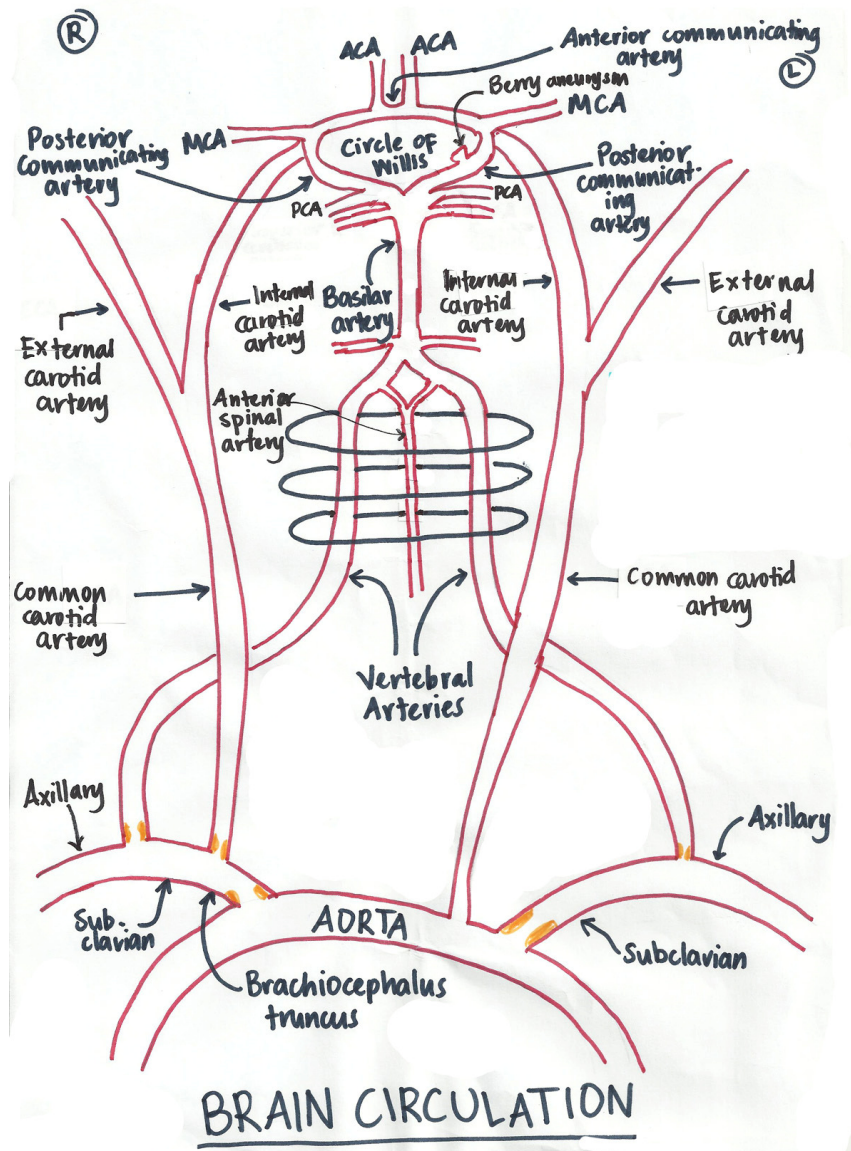 R
ACA
ACA
Anterior communicating
artery
L
Berry aneurysm
MCA
MCA
Posterior
communicating
artery
Circle of
Willis
Posterior
communicat-
ing
artery
PCA
PCA
Internal
carotid
artery
Basilar
artery
Internal
carotid
artery
External
carotid
artery
External
carotid
artery
Anterior
spinal
artery
Common
carotid
artery
Common carotid
artery
Vertebral
Arteries
Axillary
Axillary
Sub-
clavian
AORTA
Subclavian
Brachiocephalus
truncus
BRAIN CIRCULATION